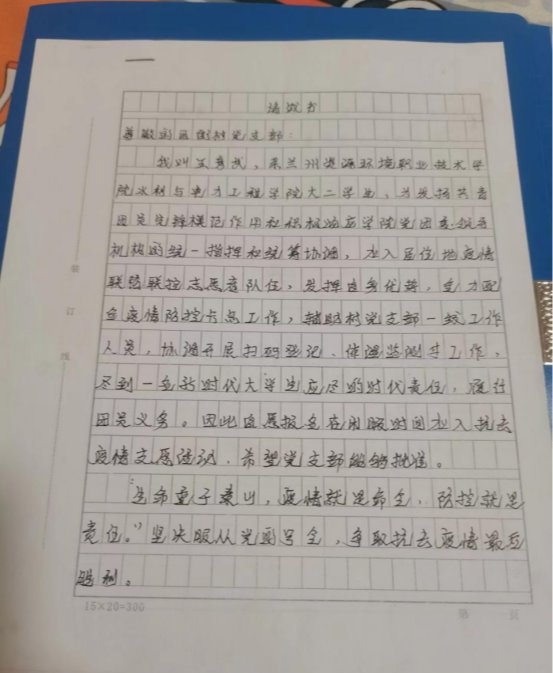 请战书
尊敬的 村党支部：
我叫 ，系兰州资源环境职业技术学
院水利与电力工程学院大二学生，为发扬共青
团员先锋模范作用和积极响应学院党团委领导
机构的统一指挥和统筹协调，加入居住地疫情
联防联控志愿者队伍，发挥自身优势，全力配
合疫情防控卡点工作，辅助村党支部一线工作
人员，协调开展扫码登记、体温监测等工作，
尽到一名新时代大学生应尽的时代责任，履行
团员义务。因此自愿报名在闲暇时间加入抗击
疫情支愿活动，希望党支部能够批准。
“生命重于泰山，疫情就是命令，防控就是
责任。”坚决服从党的号令，争取抗击疫情最后
胜利。
装
订
线
15×20=300
第 页